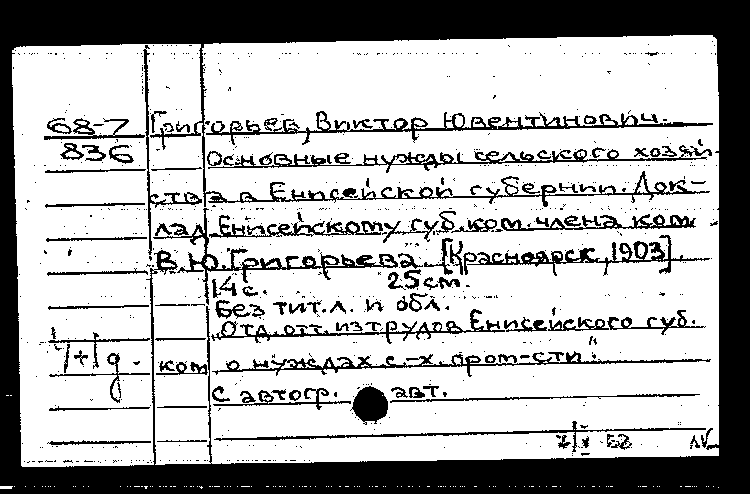 68-7 Григорьев, Виктор Ювентинович.
836 Основные нужды сельского хозяй-
ства в Енисейской губернии. Док-
лад Енисейскому губ. ком. члена ком.
В.Ю. Григорьева. [Красноярск, 1903].
14 с. 25 см.
Без тит. л. и обл.
"Отд. отт. из трудов Енисейского губ.
ком о нуждах с.-х. пром-сти".
С автогр. авт.